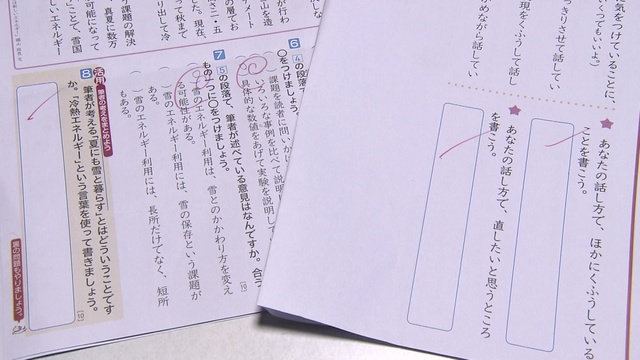 に気をつけていることに、
いくつ書いてもいいよ。)
っきりさせて話してい
現をくふうして話し
かめながら話してい
★ あなたの話し方で、ほかにくふうしている
ことを書こう。
★ あなたの話し方で、直したいと思うところ
を書こう。
6 4の段落で、
〇をつけましょう。
課題を読者に問いかけ
いろいろな事例を比べて説明
具体的な数値をあげて実験を説明して
7 5の段落で、筆者が述べている意見はなんですか。合う
もの一つに〇をつけましょう。[10]
( )雪のエネルギー利用は、雪とのかかわり方を変え
る可能性がある。
( )雪のエネルギー利用には、雪の保存という課題が
ある。
( )雪のエネルギー利用には、長所だけでなく、短所
もある。
活用 筆者の考えをまとめよう
8 筆者が考える「夏にも雪と暮らす」とはどういうことです
か。「冷熱エネルギー」という言葉を使って書きましょう。
[10]
裏の問題もやりましょう。